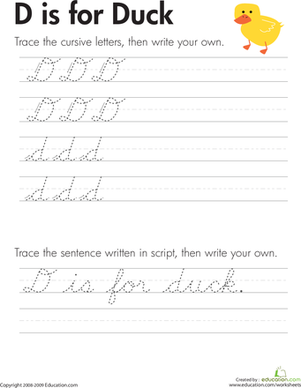 D is for Duck
Trace the cursive letters, then write your own.
D D D
D D D
d d d
d d d
Trace the sentence written in script, then write your own.
D is for duck.
Copyright 2008-2009 Education.com
Created by : education.com
www.education.com/worksheets